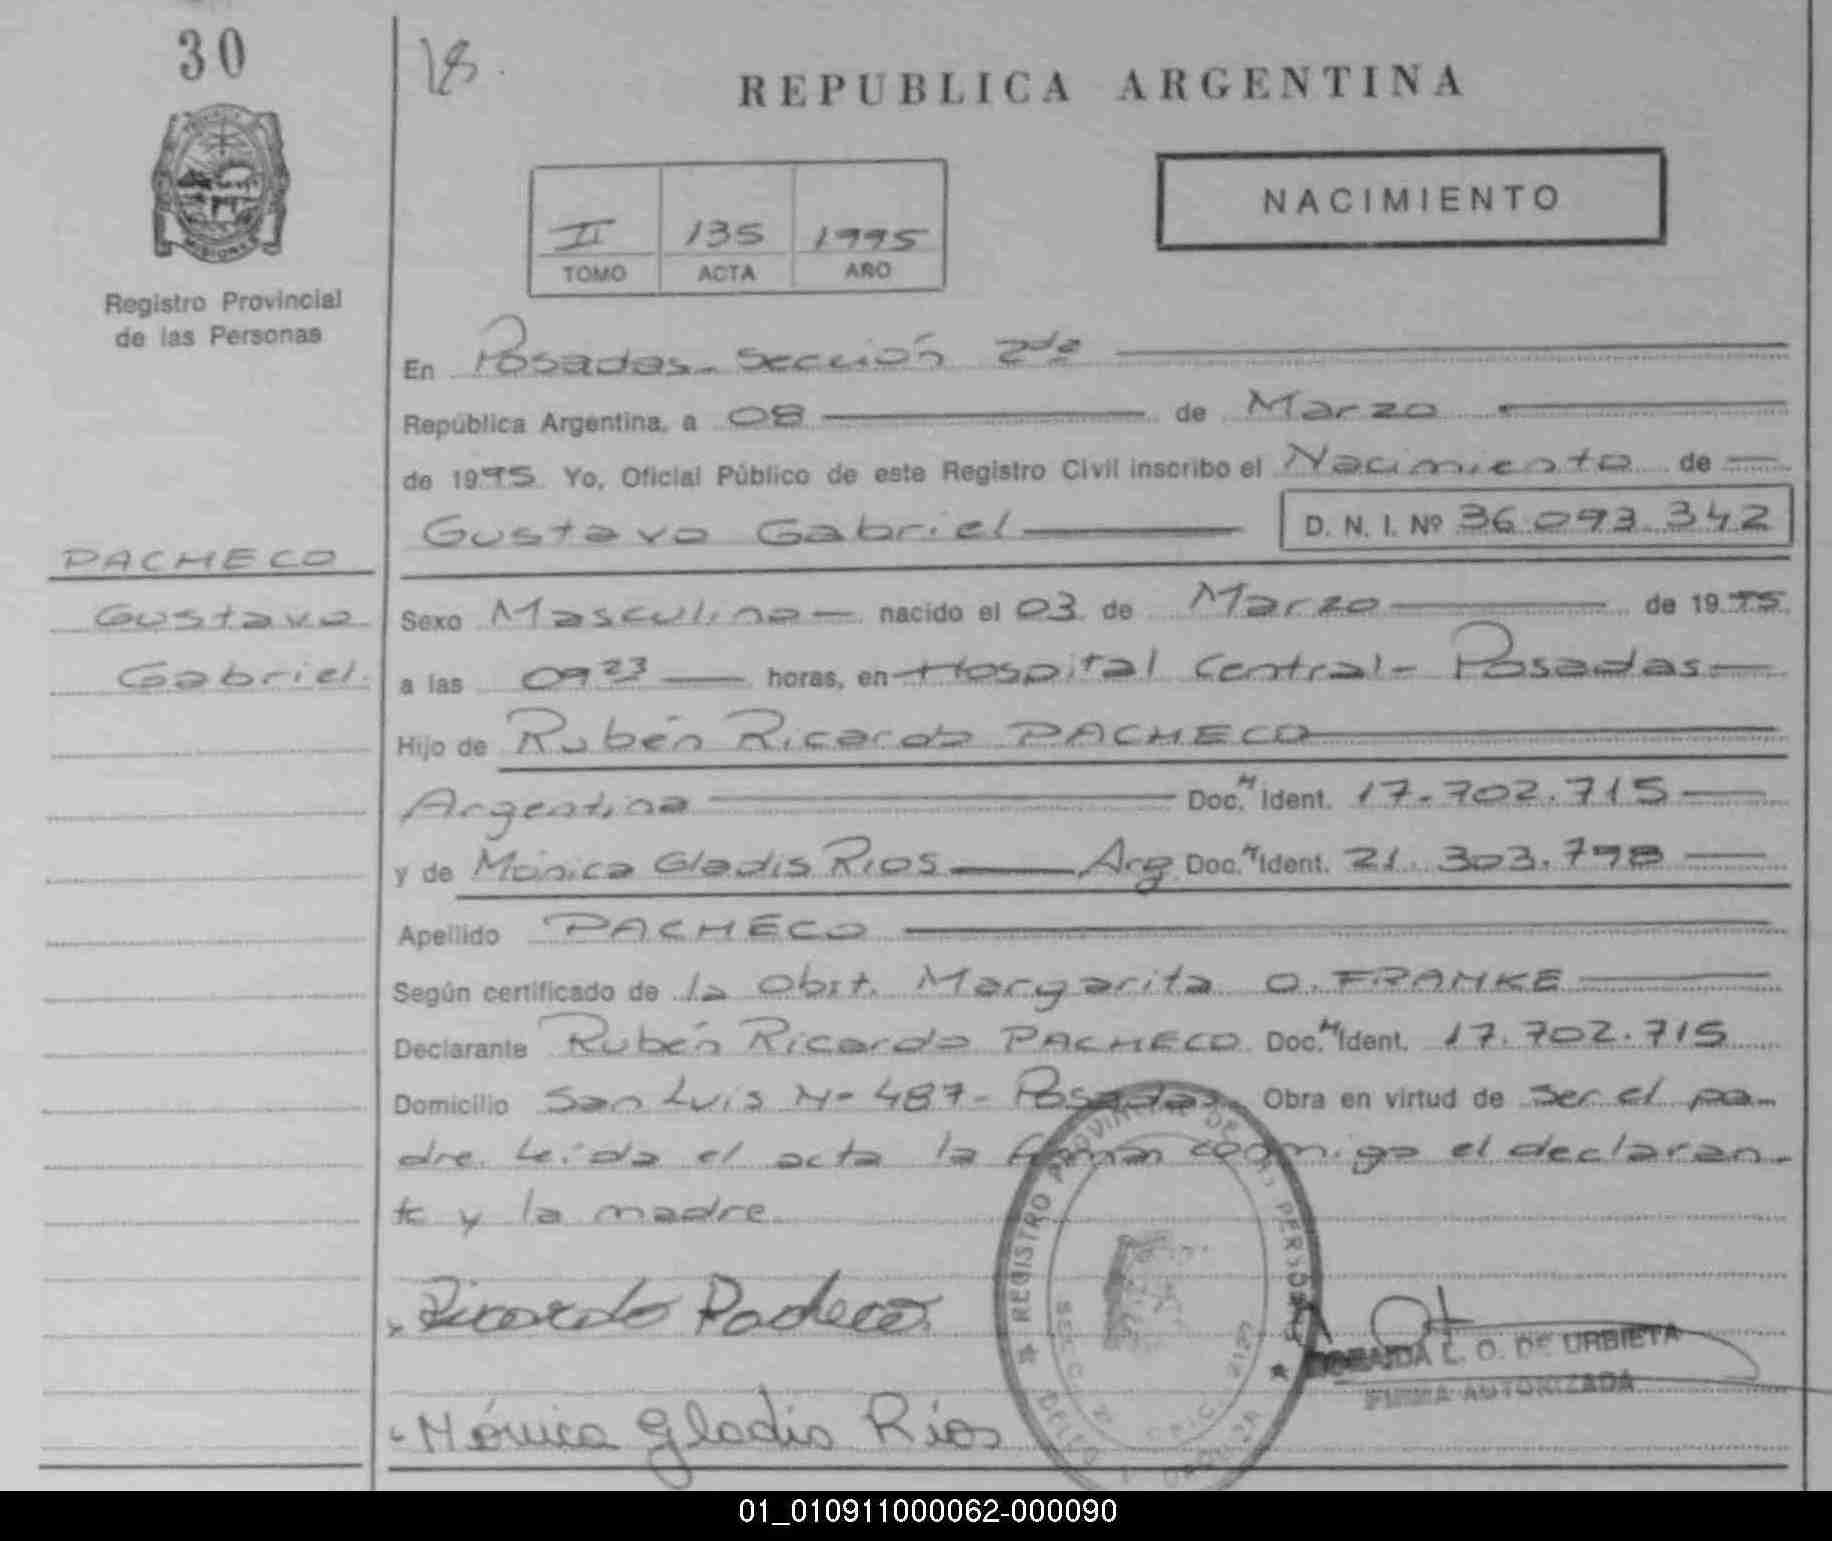 30
18
REPUBLICA ARGENTINA
NACIMIENTO
II 135 1995
TOMO ACTA AÑO
MISIONES
Registro Provincial
de las Personas
En Posadas - Sección 2da
República Argentina, a 08 de Marzo
de 1995 Yo, Oficial Público de este Registro Civil inscribo el Nacimiento de
Gustavo Gabriel D. N. I. Nº 36.093.342
PACHECO
Gustavo
Gabriel.
Sexo Masculino nacido el 03 de Marzo de 1995
a las 09 23 horas, en Hospital Central - Posadas
Hijo de Rubén Ricardo PACHECO
Argentina Doc. Nº Ident. 17.702.715
y de Mónica Gladis RIOS Arg Doc. Nº Ident. 21.303.798
Apellido PACHECO
Según certificado de la Obst. Margarita O. FRAMKE
Declarante Rubén Ricardo PACHECO Doc. Nº Ident. 17.702.715
Domicilio San Luis Nº 487 - Posadas. Obra en virtud de ser el pa-
dre. Leída el acta la firman conmigo el declaran-
te y la madre.
Ricardo Pacheco
Mónica Gladis Ríos
REGISTRO PROVINCIAL DE LAS PERSONAS
L. O. DE URBIETA
FIRMA AUTORIZADA
01_010911000062-000090